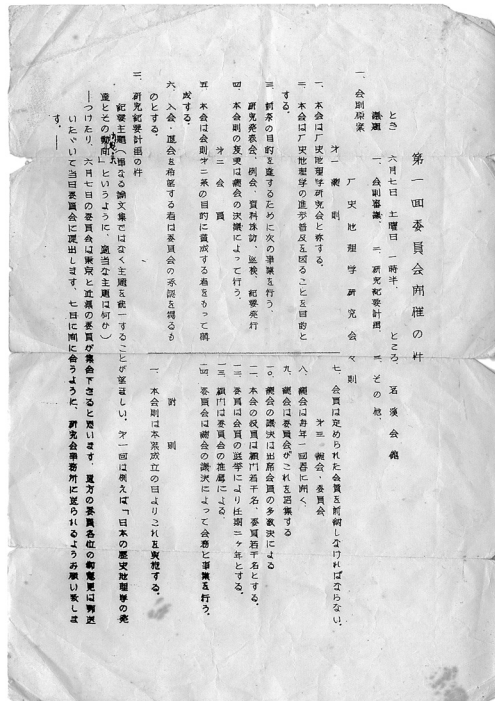 第一回委員会開催の件
とき 六月七日 土曜日 一時半、 ところ 茗渓会館
議題 一、会則審議、 二、研究紀要計画 三、その他、
一、会則原案
厂史地理学研究会々則
第一 総則
一、本会は厂史地理学研究会と称する。
二、本会は厂史地理学の進歩普及を図ることを目的と
する。
三、前条の目的を達するために次の事業を行う。
研究発表会、例会、資料採訪、巡検、紀要発行
四、本会則の変更は総会の決議によって行う。
第二 会員
五、本会は会則第二条の目的に賛成する者をもって構
成する。
六、入会・退会を希望する者は委員会の承認を得るも
のとする。
七、会員は定められた会費を前納しなければならない。
第三 総会・委員会
八、総会は毎年一回春に開く、
九、総会は委員会がこれを召集する
一〇、総会の議決は出席会員の多数決による
一一、本会の役員は顧問若干名、委員若干名とする。
一二、委員は会員の選挙により任期二ヶ年とする。
一三、顧問は委員会の推薦による
一四、委員会は総会の議決によって会務と事業を行う。
附則
一、本会則は本会成立の日よりこれを実施する。
二、研究紀要計画の件
紀要主題(単なる論文集ではなく主題を統一することが望ましい、第一回は例えば「日本の歴史地理学の発
達とその動向」というように、適当な主題は何か)
―つけたり、六月七日の委員会は東京と近県の委員が集会下さると思います。遠方の委員各位の御意見は御送
いたゞいて当日委員会に提出します、七日に間に合うように、研究会事務所に送られるようお願い致しま
す、――